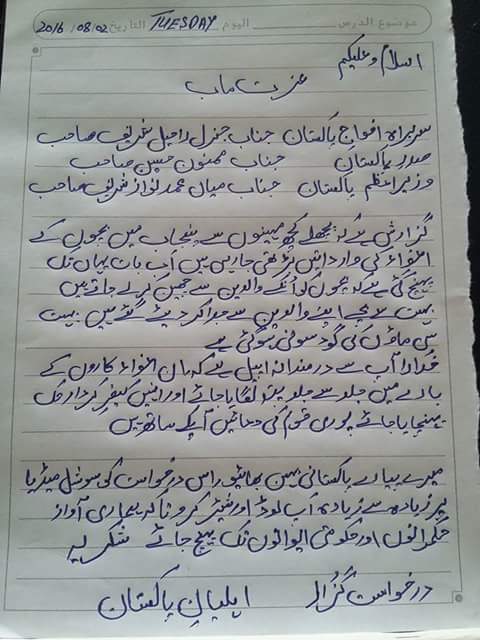 موضوع الدرس اليوم TUESDAY التاريخ 2016/08/02
اسلام و علیکم
عزت ماب
سربراہ افواج پاکستان جناب جنرل راحیل شریف صاحب
صدر پاکستان جناب ممنون حسین صاحب
وزیراعظم پاکستان جناب میاں محمد نواز شریف صاحب
گزارش ہے کہ پچھلے کچھ مہینوں سے پنجاب میں بچوں کے
اغواء کی وارداتیں بڑھتی جا رہی ہیں اب بات یہاں تک
پہنچ گئی ہے کہ بچوں کو انکے والدین سے چھین کر لے جاتے ہیں
بہت سے بچے اپنے والدین سے جدا کر دیئے گئے ہیں بہت
سی ماؤں کی گود سونی ہو گئی ہے
خدارا آپ سے درمندانہ اپیل ہے کہ ان اغواء کاروں کے
بارے میں جلد سے جلد پتہ لگایا جائے اور انہیں کیفر کردار تک
پہنچایا جائے پوری قوم کی دعائیں آپکے ساتھ ہیں
میرے پیارے پاکستانی بہن بھائیو اس درخواست کو سوشل میڈیا
پر زیادہ سے زیادہ اپ لوڈ اور شیئر کرو تاکہ ہماری آواز
حکمرانوں اور حکومتی ایوانوں تک پہنچ جائے شکریہ
درخواست گزار اہلیان پاکستان